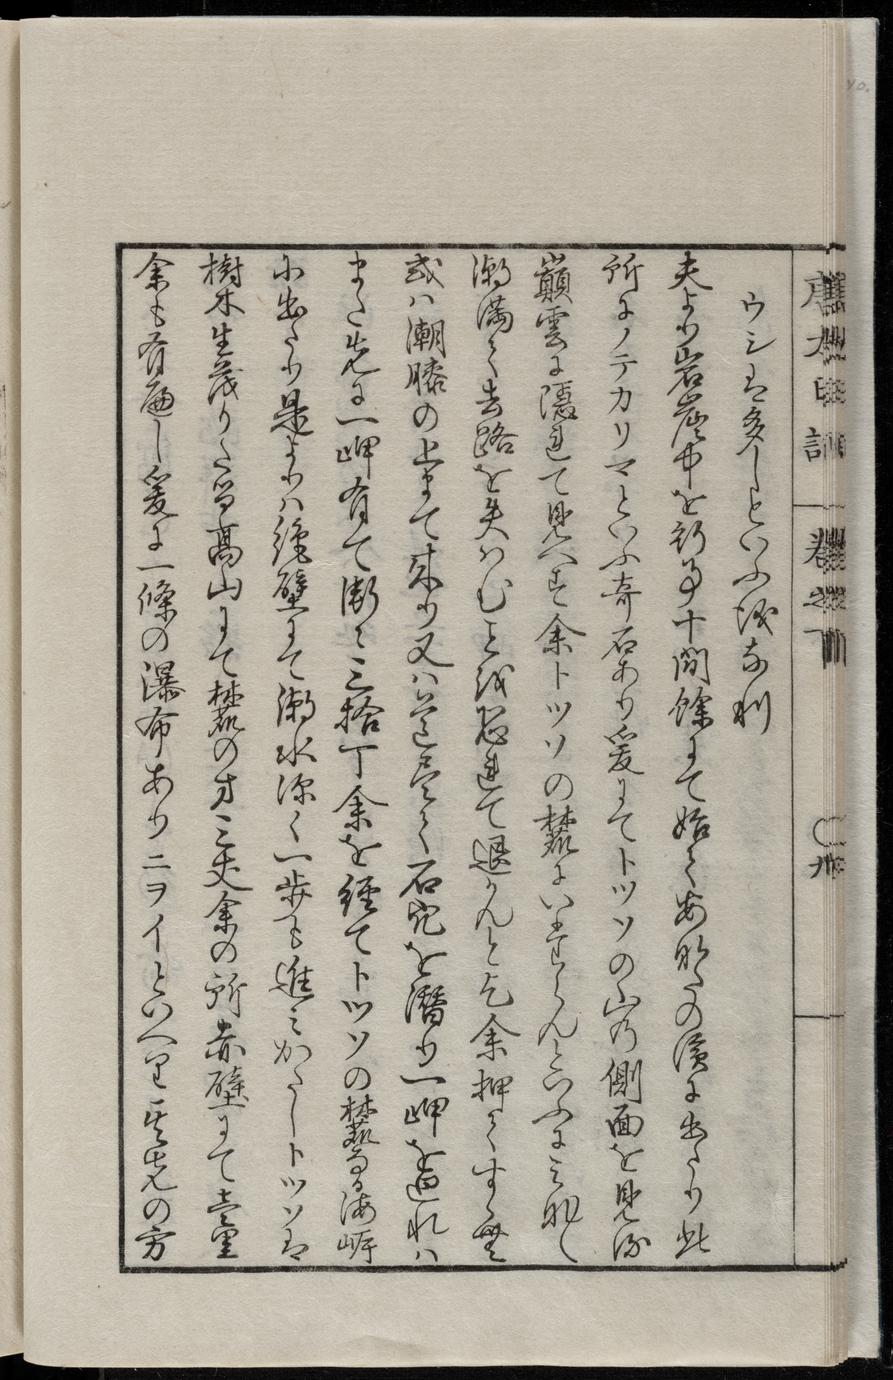 ウシは多しといふ儀なり
夫より岩崖中を行事十間餘にて始てあなたの濱に出たり此
所にノテカリマといふ奇石あり爰にてトツソの山の側面を見る
巓雲に隠れて見へす余トツソの麓にいたらんといふにみな〳〵
潮満て去路を失はむことを恐れて退かんと乞余押てすゝむ
或は潮膝の上まて来り又は道尽て石穴を潜り一岬を廻れは
また先に一岬有て漸々三拾丁余を経てトツソの麓なる海岸
に出たり是よりは絶壁にて潮水深く一歩も進みかたしトツソは
樹木生茂りたる高山にて麓の方三丈余の所赤壁にて壹里
余も有へし爰に一條の瀑布ありニヲイといへり其先の方
卷之下